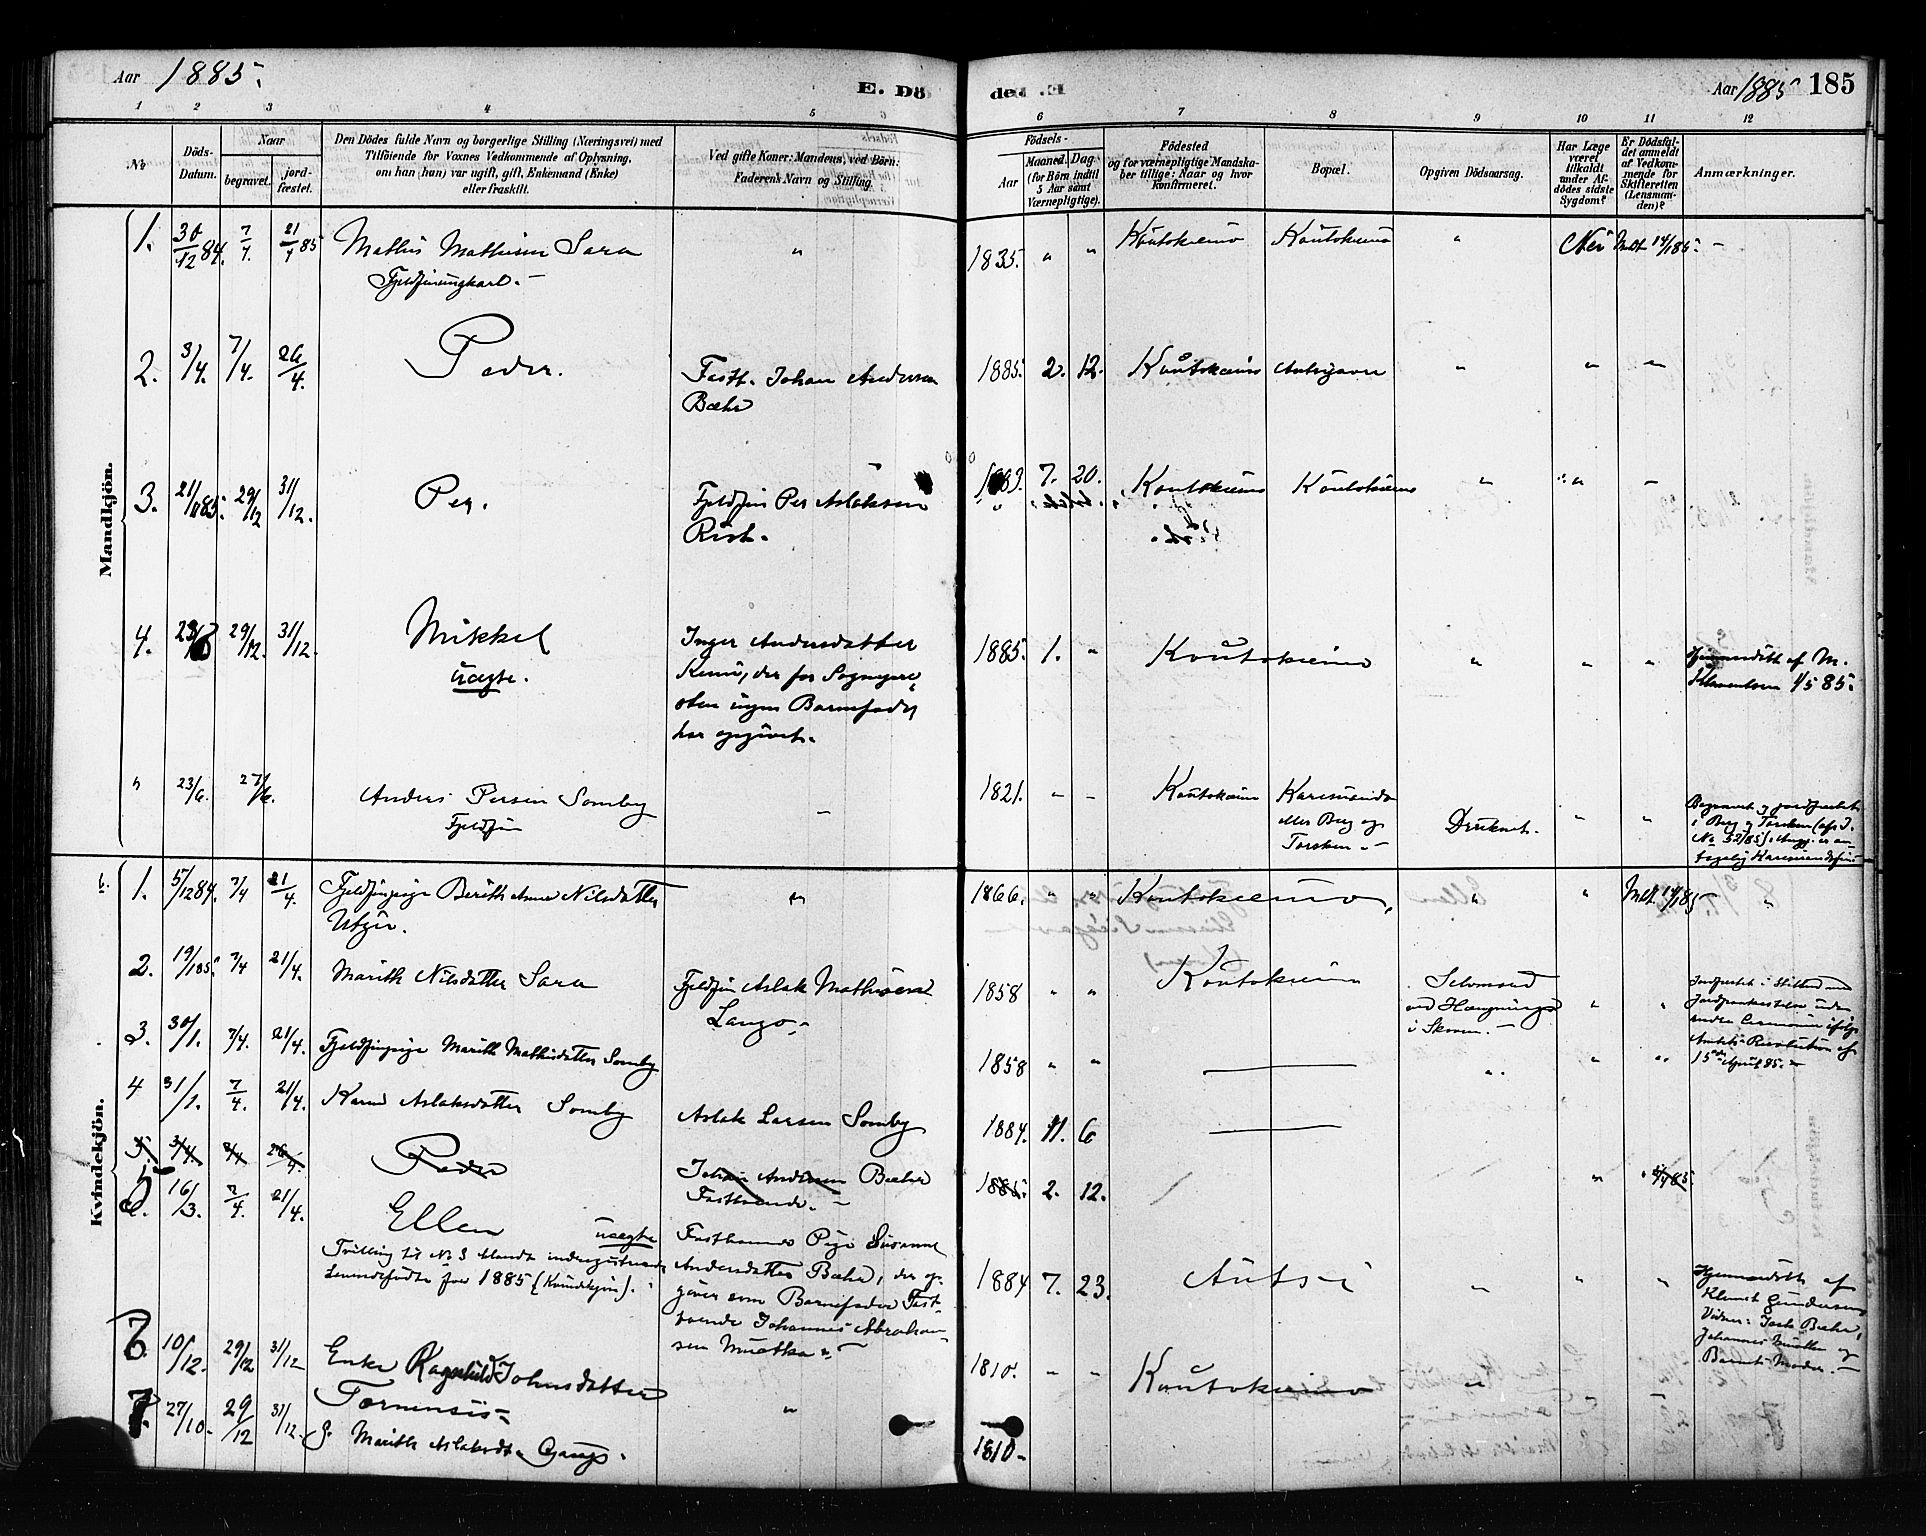 Aar 1885.
E. Dö
1 2 3 4 5 6
No
Döds-Datum.
Naar
begravet.
jord-fæstet.
Den Dödes fulde Navn og borgerlige Stilling (Næringsvei) med
Tilföiende for Voxnes Vedkommende af Oplysning,
om han (hun) var ugift, gift, Enkemand (Enke)
eller fraskilt.
Ved gifte Koner: Mandens, ved Börn:
Faderens Navn og Stilling.
Mandkjön.
1. 30/12 84. 7/4. 21/4 85 Mathis Mathisen Sara "
Fjeldfinungkarl. –
2. 3/4. 7/4. 26/4. Peder. Fastb. Johan Andersen
Bæhr
3. 21/11 85. 29/12 31/12. Per. Fjeldfin Per Aslaksen
Rist.
4. 29/12. 31/12. Mikkel Inger Andersdatter
uægte.
ingen Barnefader
har opgivet.
" 23/6. 27/6. Anders Persen Somby –
Fjeldfin
Kvindekjön.
1. 5/12 84. 7/4 21/4. Fjeldfinpige Berith Anne Nilsdatter "
Utsi.
2. 19/1 85. 7/4 21/4. Marith Nilsdatter Sara Fjeldfin Aslak Mathisen
Lango
3. 30/1. 7/4. 21/4. Fjeldfinpige Marith Mathisdatter Somby
4 31/1. 7/4. 21/4. Karen Aslaksdatter Somby Aslak Larsen Somby
5. 3/4. 7/4 26/4. Peder Johan Andersen Bæhr
Fastboende. –
5. 16/3. 7/4. 21/4. Ellen uægte Fastboende Pige Susanne
Andersdatter Bæhr, der op-
giver som Barnefader Fast-
boende Johannes Abraham-
sen Muotka
Tvilling til No 3 blandt
for 1885 (Kvindekjön).
6. 10/12. 29/12 31/12 Enke Ragnhild Johnsdatter
Tornensis
7. 27/10. 29/12 31/12. G. Marith Aslaksdt. Gaup. "
ded .E
Aar 1885 185
6 7 8 9 10 11 12
Födsels-
Aar
Maaned. Dag.
(for Börn indtil
5 Aar samt
Værnepligtige).
Födested
og for værnepligtige Mandska-
ber tillige: Naar og hvor
konfirmeret.
Bopæl.
Opgiven Dödsaarsag.
Har Læge
været
tilkaldt
under Af-
dödes sidste
Sygdom?
Er Dödsfal-
det anmeldt
af Vedkom-
mende for
Skifteretten
(Lensman-
den)?
Anmærkninger.
1835. " " Koutokeino Koutokeino " Nei Mdt 14/1 85. –
1885. 2. 12. Koutokeino " " "
1883. 7. 20. Koutokeino Koutokeino " " –
1885. 1. " Koutokeino " " " Hjemmedøbt af M.
Klementsen 1/5 85.
1821. – – Koutokeino Karesuando
eller Berg og
Torsken. – Druknet. " " Begravet og jordfæstet
i Berg og Torsken
1866. " " Koutokeino, " " Mdt. 14/1 85 "
1858 " " Koutokeino Selvmord
ved Hængning
i Skoven. – " " Jordfæstet i Stilhed med
Jordpaakastelse uden
andre Ceremonier ifølge
Amtets Resolution af
15de April 85. –
1858 " " " " "
1884. 11. 6
1885. 2. 12.
1884 7. 23. Autsi " " " Hjemmedøbt af
Klemet Gundersen
Vidner: Bæhr,
Johannes og
Barnets Moder. –
1810. – – Koutokeino "
1810 –